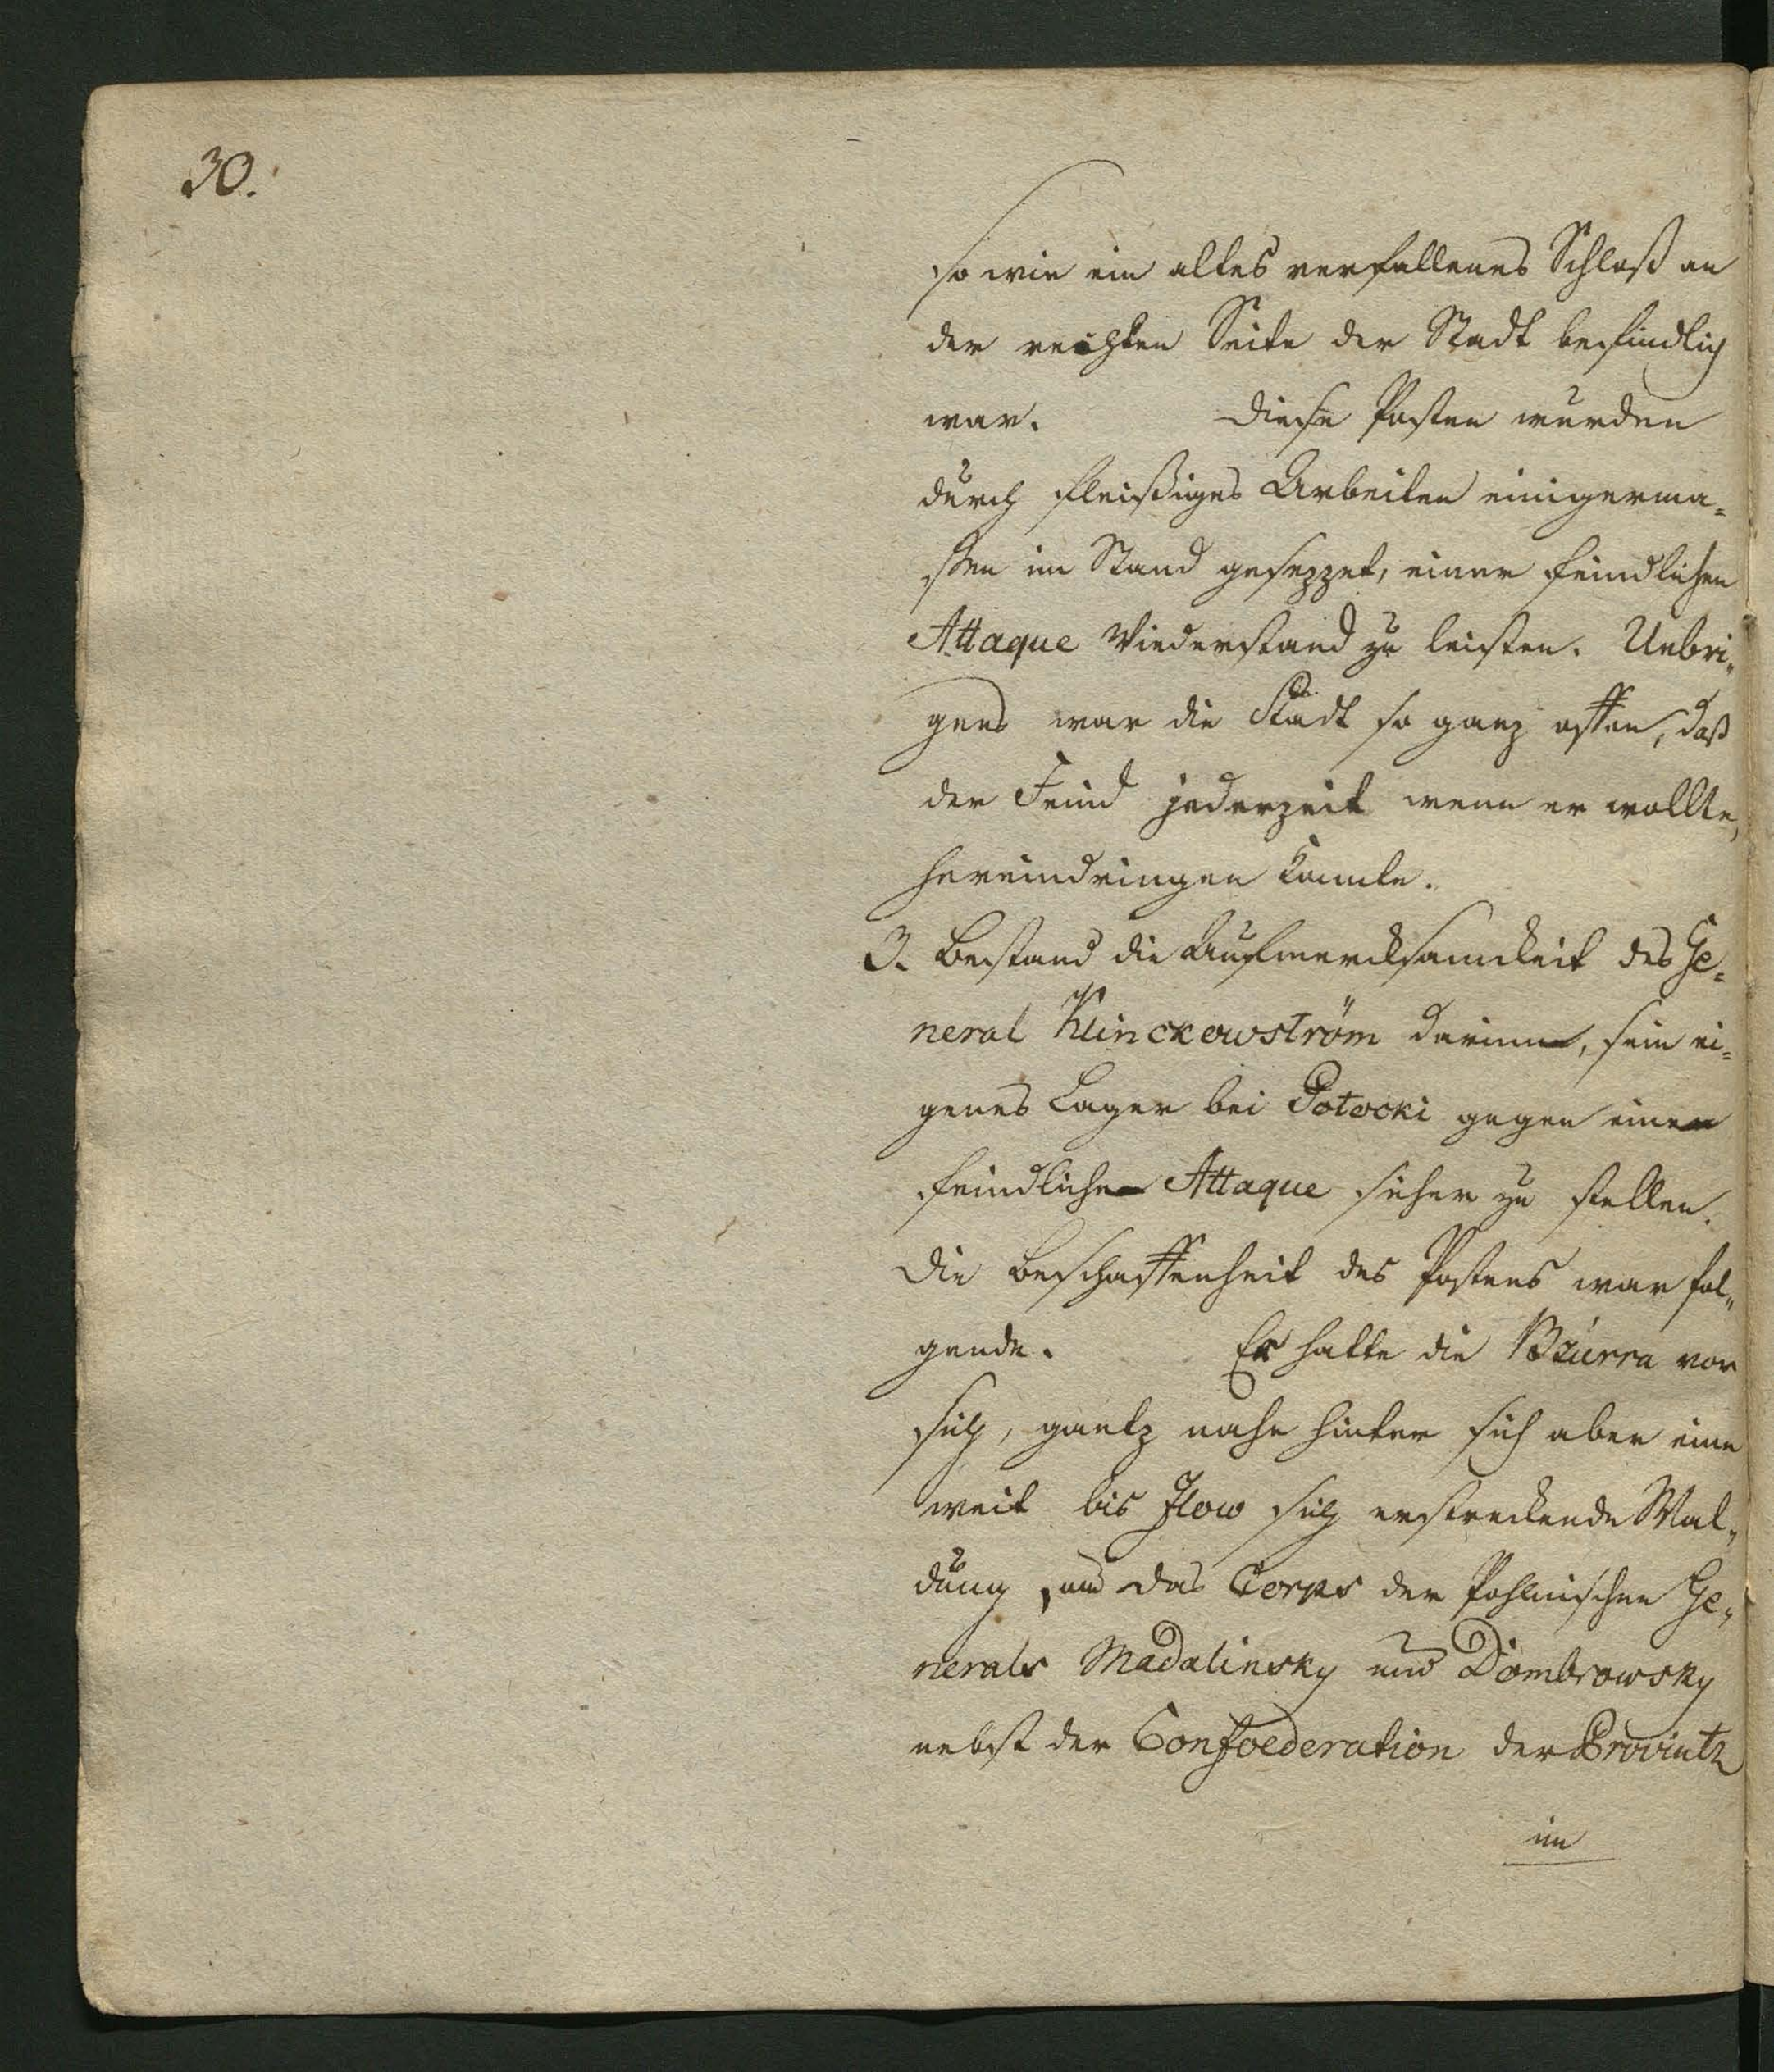 30.
so wie ein altes verfallenes Schloß an
der rechten Seite der Stadt befindlich
war. Diese Posten wurden
durch fleißiges Arbeiten einigerma-
ßen im Stand gesezzet, einer feindlichen
Attaque Wiederstand zu leisten. Uebri-
gens war die Stadt so ganz offen, daß
der Feind jederzeit wenn er wollte,
hereindringen konnte.
3. Bestand die Aufmercksamckeit des Ge-
neral Klinckowström darinn, sein ei-
genes Lager bei Potocki gegen eine
feindliche Attaque sicher zu stellen.
Die Beschaffenheit des Postens war fol-
gende. Er hatte die Bzurra vor
sich, gantz nahe hinter sich aber eine
weit bis Jlow sich erstreckende Wal-
dung, und das Corps der Pohlnischen Ge-
nerals Madalinsky und Dombrowsky
nebst der Confoederation der Provintz
im